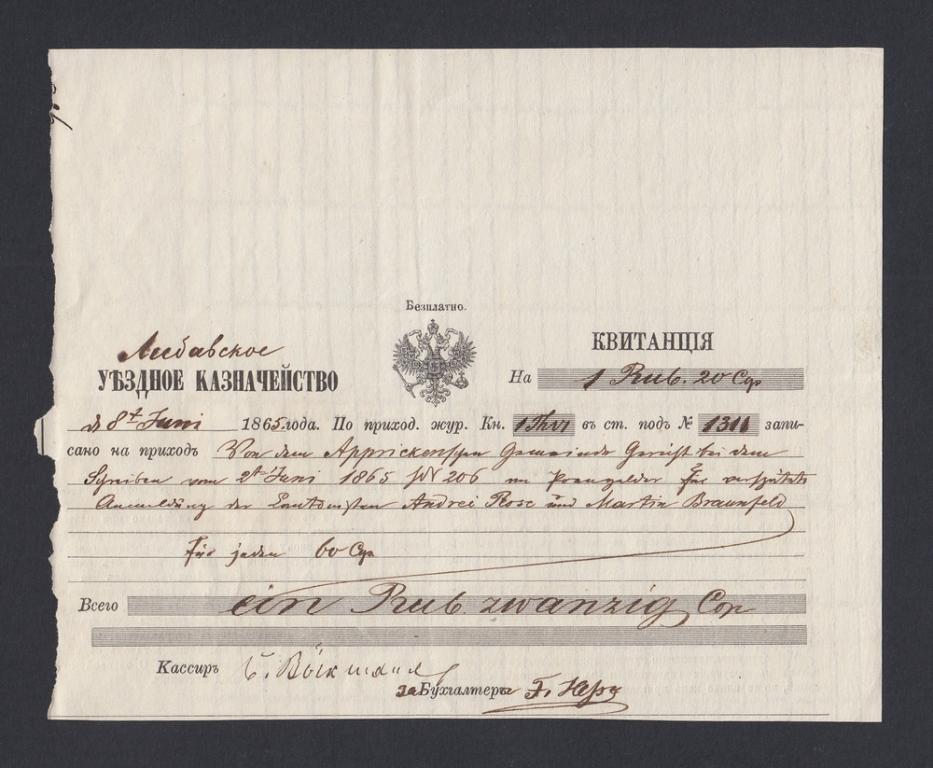 Безплатно.
Либавское
УѢЗДНОЕ КАЗНАЧЕЙСТВО
КВИТАНЦІЯ
На 1 Rub. 20 Cop
d 8t Juni 1865 года. По приход. жур. Кн. 1 въ ст. подъ № 1311 запи-
сано на приходъ Von dem Apprickenschen Gemeinde Gericht bei dem
Schreiben vom 2t Juni 1865 № 206 an für verspätete
Anmeldung der Andrei Rose und Martin Braunfeld
Für jeden 60 Cop
Всего ein Rub. zwanzig Cop
Кассиръ
за Бухгалтера